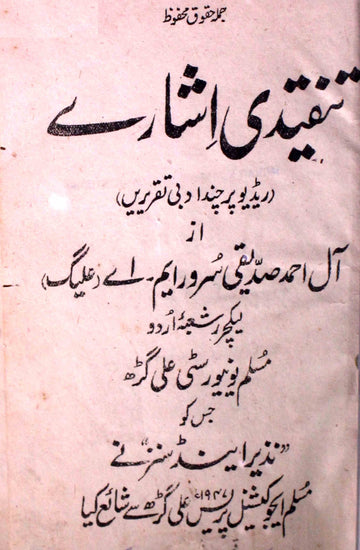 جملہ حقوق محفوظ
تنقیدی اِشارے
(ریڈیو پر چند ادبی تقریریں)
از
آل احمد صدیقی سُرور ایم۔ اے (علیگ)
لیکچرر شعبۂ اُردو
مُسلم یونیورسٹی علی گڑھ
جس کو
"نذیر اینڈ سنز" نے
۱۹۴۷ء
مسلم ایجوکیشنل پریس علی گڑھ سے شائع کیا